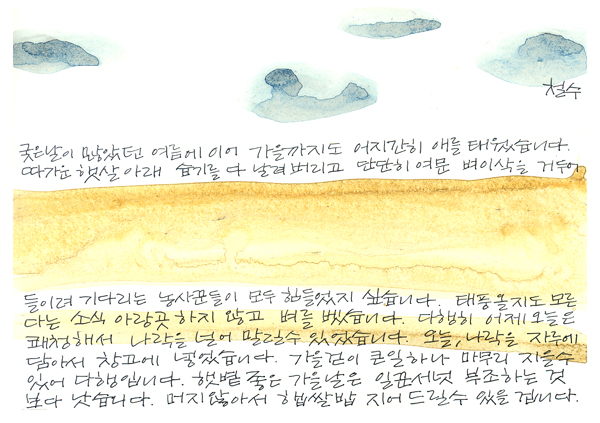 철수
궂은날이 많았던 여름에 이어 가을까지도 어지간히 애를 태웠습니다.
따가운 햇살 아래 습기를 다 날려 버리고 단단히 여문 벼이삭을 거두어
들이려 기다리는 농사꾼들이 모두 힘들었지 싶습니다. 태풍 올지도 모른
다는 소식 아랑곳 하지 않고 벼를 벴습니다. 다행히 어제 오늘은
쾌청해서 나락을 널어 말릴수 있었습니다. 오늘, 나락을 자루에
담아서 창고에 넣었습니다. 가을걷이 큰일 하나 마무리 지을수
있어 다행입니다. 햇볕 좋은 가을날은 일꾼 서넛 부조하는 것
보다 낫습니다. 머지않아서 햅쌀밥 지어 드릴수 있을 겁니다.